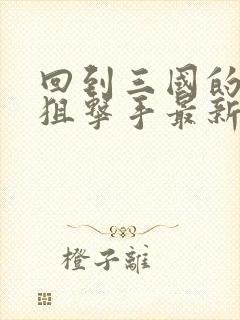 回到三國的
狙擊手最新
橙子離